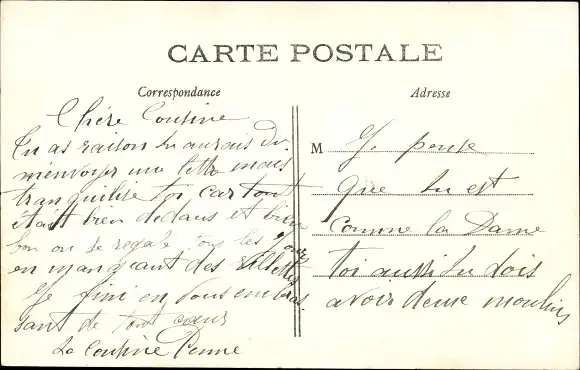 CARTE POSTALE
Correspondance
Adresse
Chère Cousine
Tu as raison tu aurais du
m'envoyer une lettre mais
tranquilise toi car tout
était bien dedans et bien
bon on se regale tous les jours
en mangeant des rillettes
Je fini en vous embras
sant de tout cœur
La Cousine
M Je pense
que tu est
comme la Dame
toi aussi tu dois
avoir deux moulins